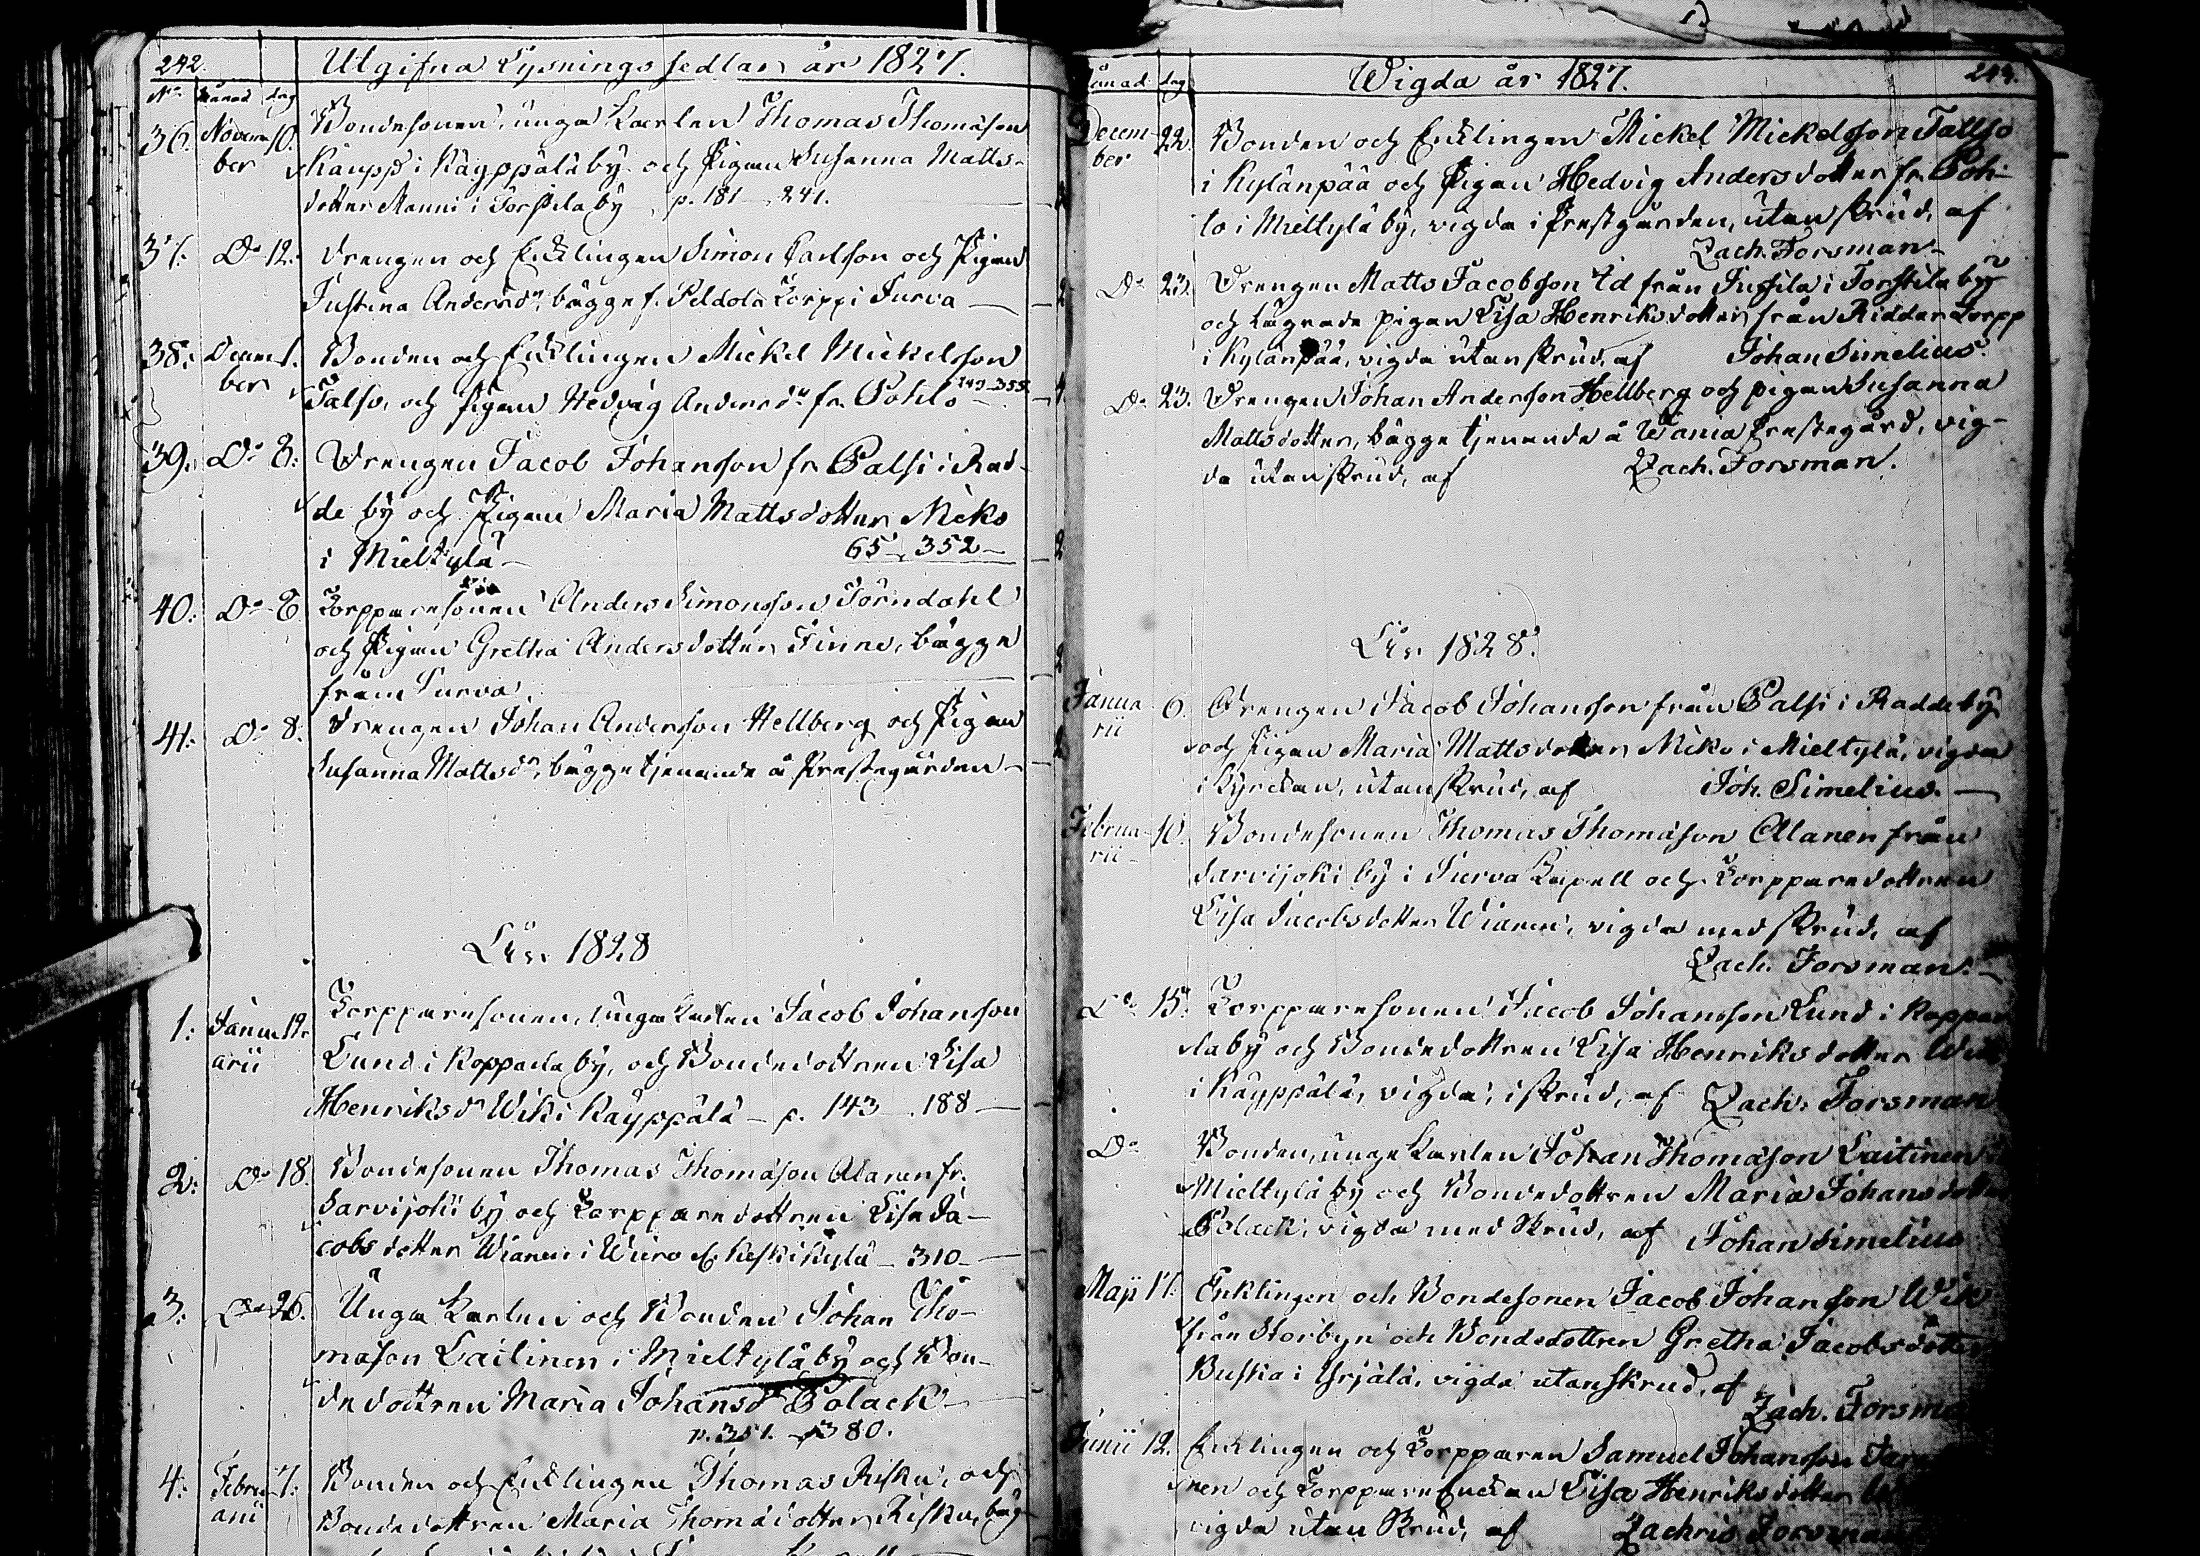 242.
Utgifna Lysningssedlar år 1827.
No Månad dag
36. Novem- 10. Bondesonen, unga Karlen Thomas Thomason
ber Kaupp i Käyppälä by och Pigan Susanna Matts-
dotter Nanni i Torstila by p. 181 241.
37. Do 12. Drengen och Enklingen Simon Carlson och Pigan
Justina Andersdr, bägge f. Peldola Torp i Jurva
38. Decem- 1. Bonden och Enklingen Mickel Mickelsson
ber Talso, och Pigan Hedvig Andersdr fr. Pohto 249-355.
39. Do 8. Drengen Jacob Johanson fr Palsi i Rad-
de by och Pigan Maria Mattsdotter Niko
i Mieltylä 65. 352
40. Do 8 Torpparesonen Anders Simonsson Törndahl
och Pigan Gretha Andersdotter Finne, bägge
från Jurva.
41. Do 8. Drengen Johan Andersson Hellberg och Pigan
Susanna Mattsdr, bägge tjenande å Prestegården
År 1828
1. Janu- 12. Torpparesonen, unga Karlen Jacob Johanson
arii Lund i Koppada by, och Bondedottren Lisa
Henriksdr Wik i Käyppälä p. 143 188
2. Do 18. Bondesonen Thomas Thomason Alanen fr.
Sarvijoki by och Torpparedottren Lisa Ja-
cobsdotter Wianen i Wiiro af Keskikylä 310
3. Do 26. Unga Karlen och Bonden Johan Tho-
mason Laitinen i Mieltylä by och Bon-
dedottren Maria Johansdr Polack
p. 351. 380.
4. Febru- 7. Bonden och Enklingen Thomas Risku, och
arii Bondedottren Maria Thomædotter Risku, bäg-
Månad dag
Wigda år 1827.
244.
Decem- 22. Bonden och Enklingen Mickel Mickelsson Tallso
ber i Kylänpää och Pigan Hedvig Andersdotter fr. Poh-
to i Mieltylä by, vigda i Prestgården, utan skrud, af
Zach. Forsman
Do 23. Drengen Matts Jacobsson Id från Jussila i Torstila by
och Lägrade pigan Lisa Henriksdotter från Riddar Torpp
i Kylänpää, vigda utan skrud, af Johan Simelius.
Do 23. Drengen Johan Anderson Hellberg och pigan Susanna
Mattsdotter, bägge tjenande å Prestegård, vig-
da utan skrud, af Zach. Forsman.
År 1828.
Janua- 6. Drengen Jacob Johansson från Palsi i Radde by
rii och Pigan Maria Mattsdotter Niko i Mieltylä, vigda
i Kyrckan, utan skrud, af Joh. Simelius.
Februa- 10. Bondesonen Thomas Thomason Alanen från
rii Sarvijoki by i Jurva Kapell och Torpparedottren
Lisa Jacobsdotter Wianen, vigda med skrud, af
Zach. Forsman.
Do 15. Torpparesonen Jacob Johansson Lund i Koppa-
da by och Bondedottren Lisa Henriksdotter Wik
i Käyppälä, vigda i skrud, af Zach. Forsman
Do Bonden, unge Karlen Johan Thomason Laitinen
Mieltylä by och Bondedottren Maria Johansdotter
Polack, vigda med skrud, af Johan Simelius
Maji 17. Enklingen och Bondesonen Jacob Johansson Wik
från Storbyn och Bondedottren Gretha Jacobsdotter
Bustia i Yrjälä, vigda utan skrud, af
Zach. Forsman
Junii 12. Enklingen och Torpparen Samuel Johansson
nen och Torppare Enckan Lisa Henriksdotter
vigda utan skrud, af Zachris Forsman